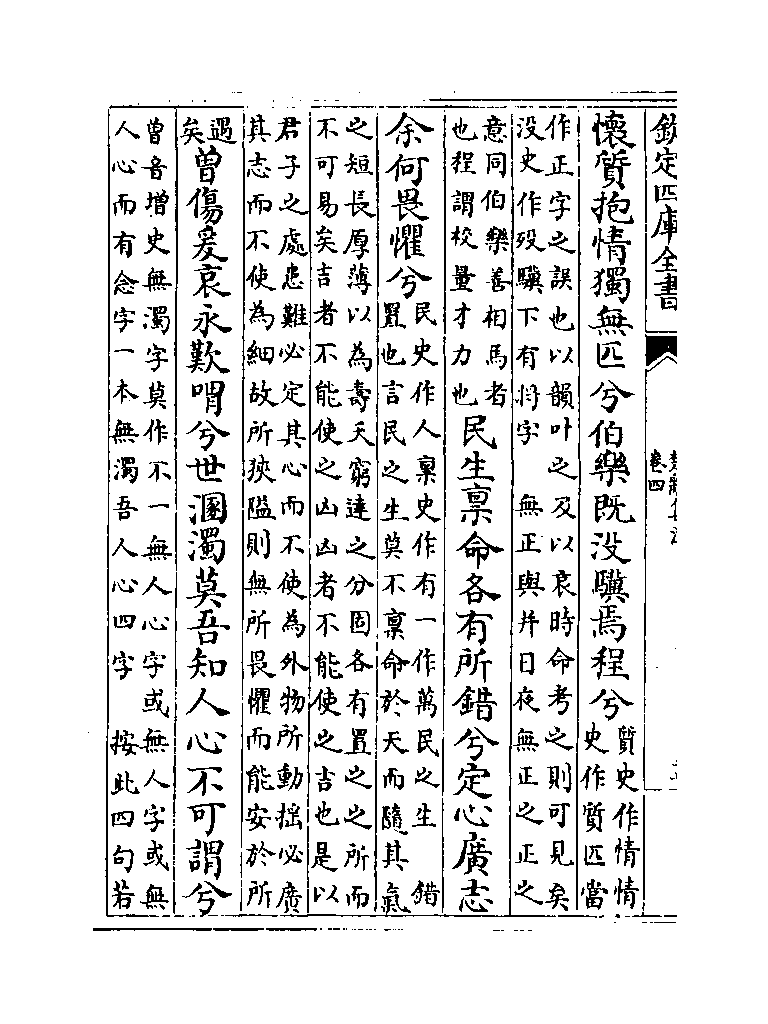 欽定四庫全書
卷四
懷質抱情獨無匹兮伯樂既沒驥焉程兮質史作情情
史作質匹當
作正字之誤也以韻叶之及以哀時命考之則可見矣
沒史作歿驥下有將字 無正與幷日夜無正之正之
意同伯樂善相馬者
也程謂校量才力也民生稟命各有所錯兮定心廣志
余何畏懼兮民史作人稟史作有一作萬民之生 錯
置也言民之生莫不稟命於天而隨其氣
之短長厚薄以為壽夭窮達之分固各有置之之所而
不可易矣吉者不能使之凶凶者不能使之吉也是以
君子之處患難必定其心而不使為外物所動揺必廣
其志而不使為細故所狹隘則無所畏懼而能安於所
遇
矣曾傷爰哀永歎喟兮世溷濁莫吾知人心不可謂兮
曾音增史無濁字莫作不一無人心字或無人字或無
人心而有念字一本無濁吾人心四字 按此四句若